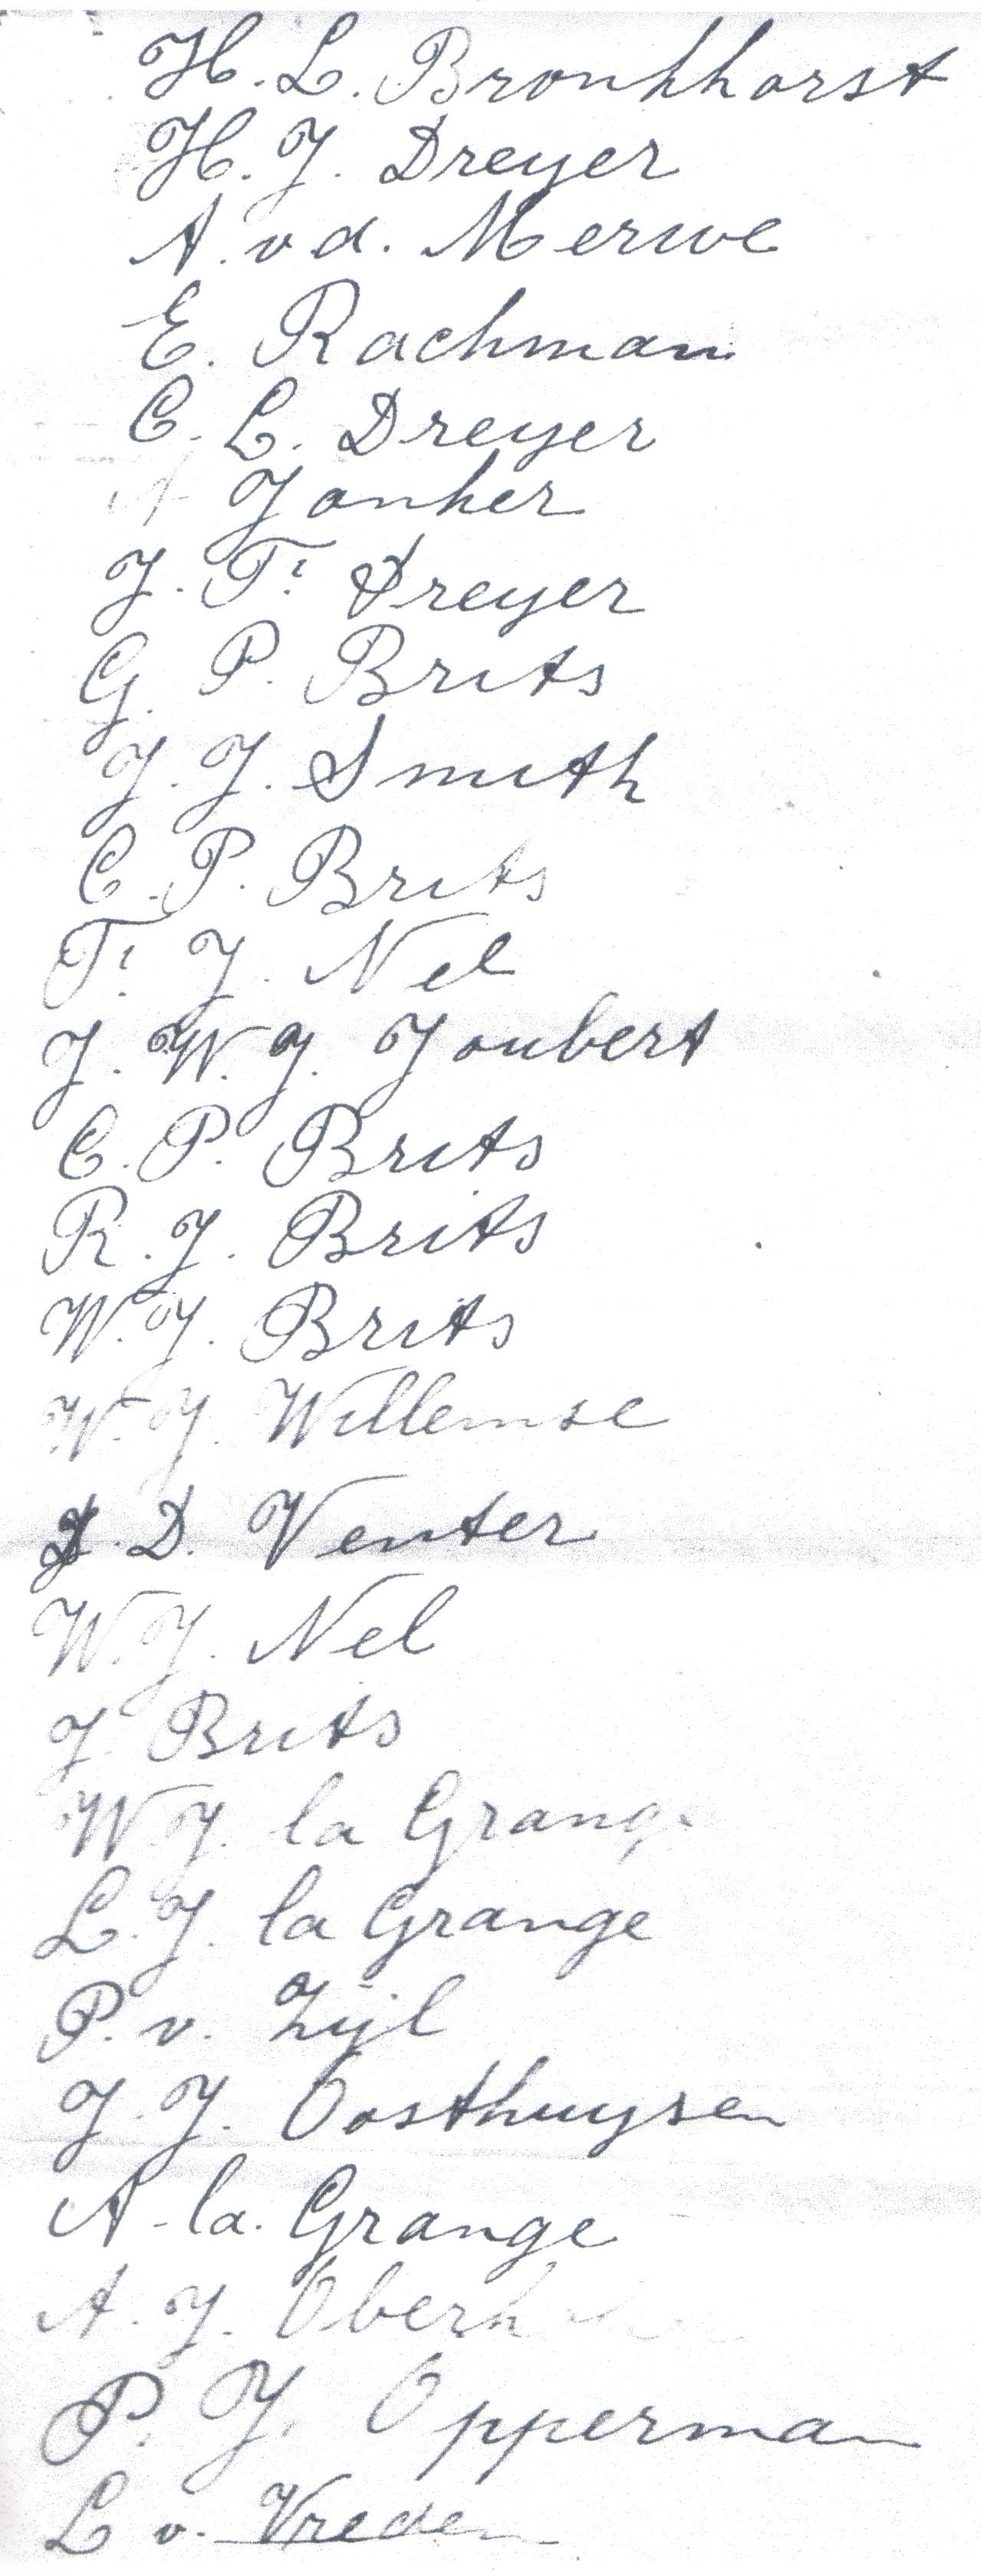 H. L. Bronkhorst
H. J. Dreyer
A. v d. Merwe
E. Rachman
C. L. Dreyer
A Jonker
J. F. Dreyer
G. P. Brits
J. J. Smith
C. P. Brits
F. J. Nel
J. W. J. Joubert
C. P. Brits
R. J. Brits
W. J. Brits
W. J. Willemse
D. Venter
W. J. Nel
J. Brits
W. J. la Grange
L. J. la Grange
P. v. Zijl
J. J. Oosthuysen
A. la. Grange
A. J.
P. J. Opperman
L v. Vreden